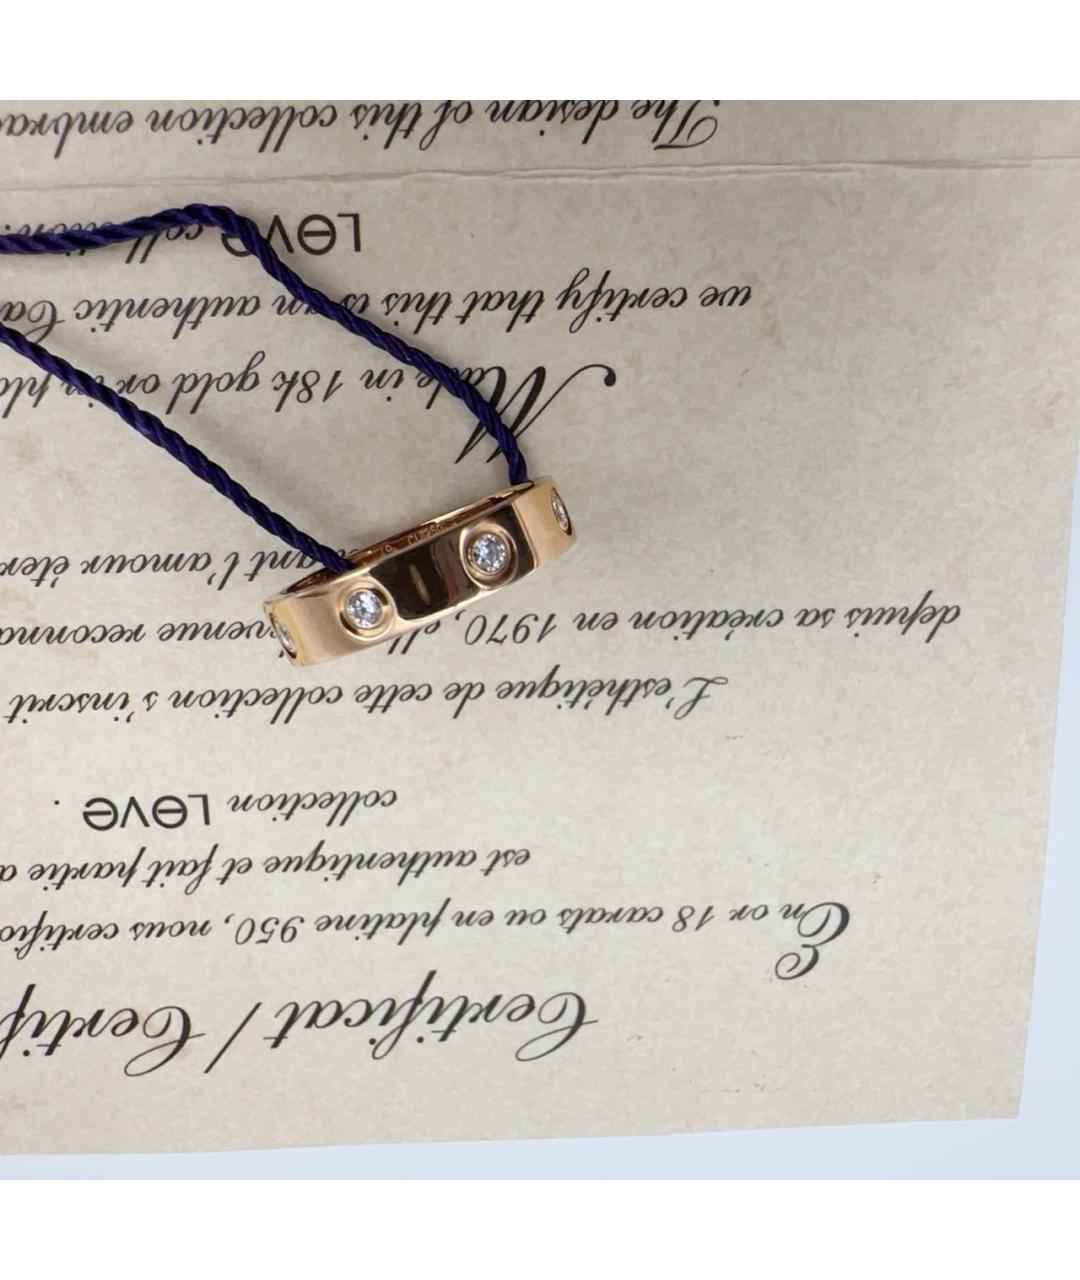 Certificat / Certif
En or 18 carats ou en platine 950, nous certifio
est authentique et fait partie
collection LOVE .
L'esthétique de cette collection s'inscrit
depuis sa création en 1970, elle
l'amour éter
Made in 18k gold or in pla
we certify that this is an authentic Ca
LOVE collection.
The design of this collection embrac